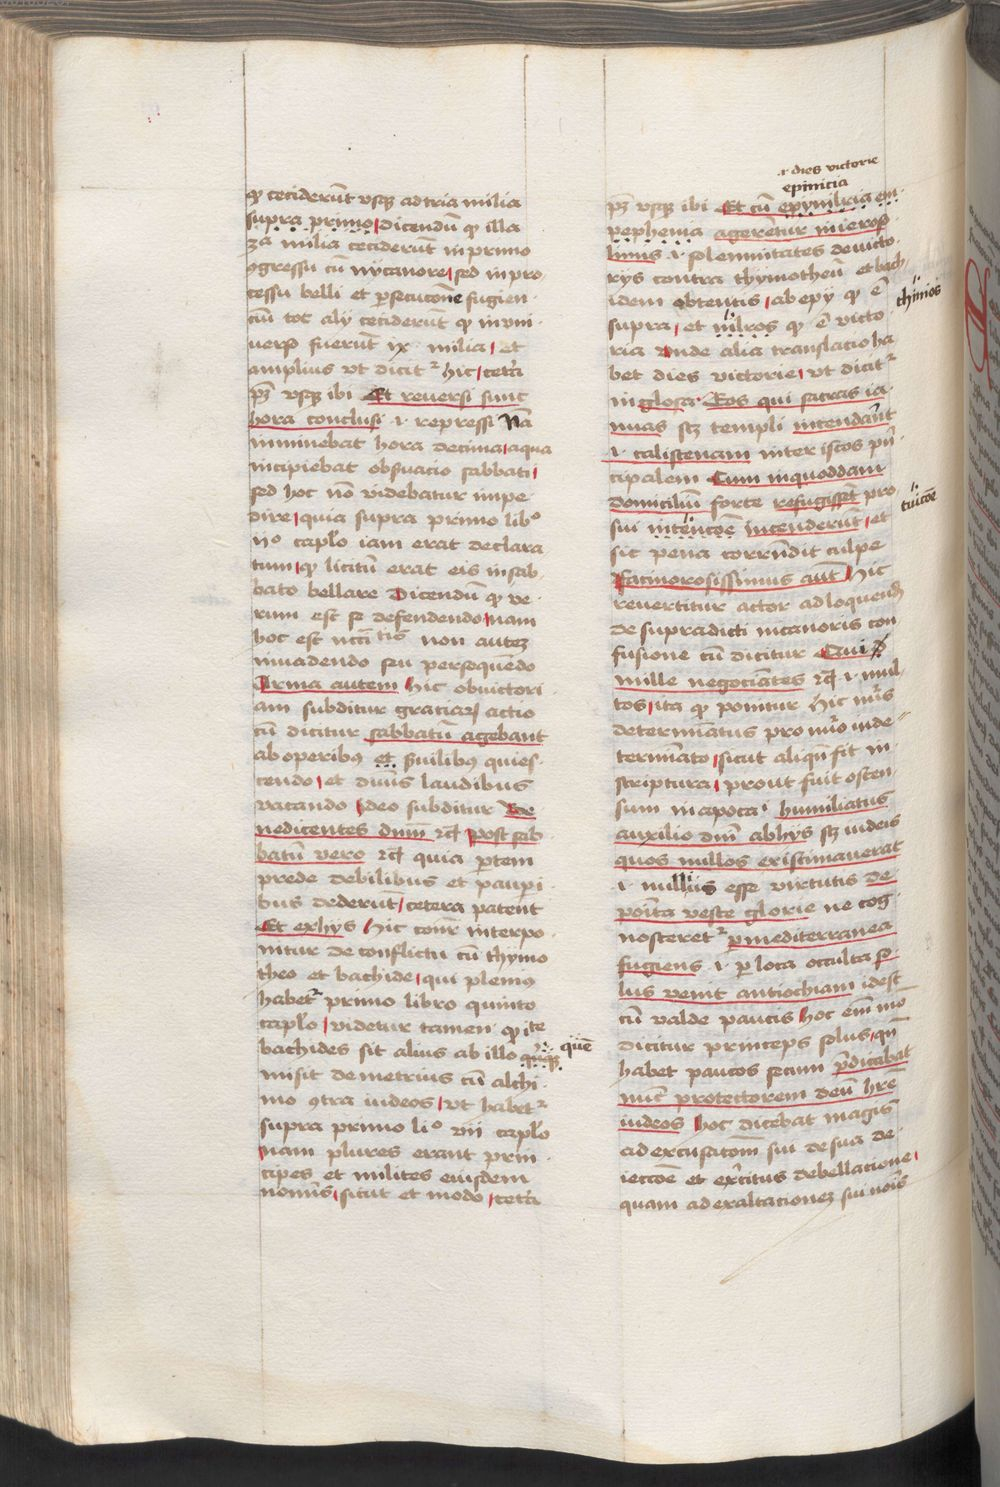 qꝫ ceciderūt vsqꝫ ad tria milia
supra primo dicendū qꝫ illa
3ᵃ milia ceciderūt in primo
ꝯgressu cū nycanore sed in pro
cessu belli et ꝑsecucōne fugien
ciū tot alij ceciderūt qꝫ in vni
uerso fuerūt ix milia Et
amplius vt dicitʳ hic ceteᵃ
pꝫ vsqꝫ ibi Et reuersi sunt
hora conclusi .i. repressi Nā
inminebat hora decima a qua
incipiebat obseruacio sabbati
sed hoc nō videbatur impe
dire quia supra primo libᵒ
ijᵒ capłᵒ iam erat declara
tum qꝫ licitū erat eis in sab
bato bellare Dicendū qꝫ ve
rum est se defendendo nam
hoc est ncc̄itatis non autez
inuadendo seu persequendo
Arma autem hic ob victori
am subditur graciaꝝ actio
cū dicitur sabbatū agebant
ab operibꝰ et ẜuilibꝰ quies
cendo et diuīs laudibus
vacando Ideo subditur Be
nedicentes dnm̄ rc̄ post sab
batū vero rc̄ quia ꝑtem
prede debilibus et pauꝑi
bus dederūt cetera patent
Et ex hijs hic conr̄ interpo
nitur de conflictu cū thymo
theo et bachide qui pleniꝰ
habetʳ primo libro quinto
capłᵒ videtur tamen qꝫ iste
bachides sit alius ab illo quēqꝫ quē
misit demetrius cū alchi
mo ꝯtra iudeos vt habetʳ
supra primo liᵒ vij capłᵒ
nam plures erant prin
cipes et milites eiusdem
nomīs sicut et modo ceteᵃ
.i. dies victorie
epinicia
pꝫ vsqꝫ ibi Et cū epynilria em
pephenia ageretur in ieroso
limis .i. solemnitates de victo
rijs contra thymotheū et bach
idem obtentis ab epy qꝫ ē
thinios
supra et nilros qꝫ ē victo
ria Vnde alia translacio ha
bet dies victorie vt dicitʳ
in glosa Eos qui sacras ia
nuas scꝫ templi incendāut
.i. calistenam inter istos pn̄
cipalem Cum in quoddam
domiciliū forte refugisset pro
tuicōe
sui intencōe incenderūt et
sic pena corrn̄dit culpe
Facinorosissimus aūt hic
reuertitur actor ad loquend̄
de supradicti nicanoris con
fusione cū dicitur Qui
mille negociātes rc̄ .i. mul
tos ita qꝫ ponitur hic nūs
determīatus pro nūo inde
termīato sicut aliqn̄ fit in
scriptura prout fuit osten
sum in apoca humiliatus
auxilio dnī ab hijs scꝫ iudeis
quos nullos existimauerat
.i. nullius esse virtutis de
poīta veste glorie ne cog
nosceretʳ ꝑ mediterranea
fugiens .i. ꝑ loca occulta so
lus venit antiochiam idest
cū valde paucis hoc em̄ mō
dicitur princeps solus qn̄
habet paucos secum p̄dicabat
nūc protectorem deū hr̄e
iudeos hoc dicebat magis
ad excusatōm sui de sua de
ieccōe et exˈcitus debellacione
quam ad exaltacionez sui noīs